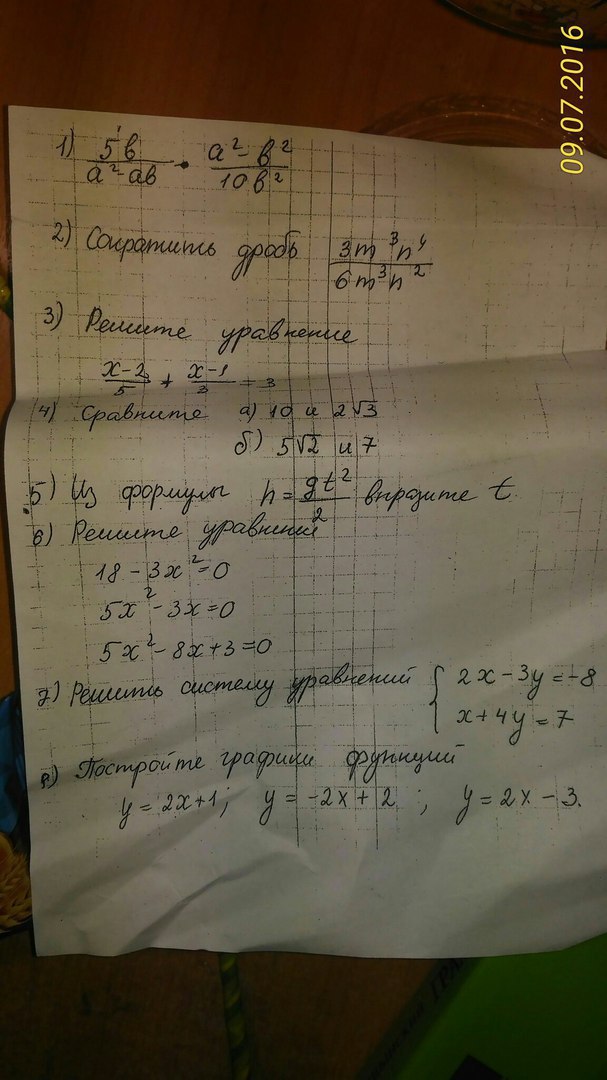 09.07.2016
1) 5в/(a²-aв) • (a²-в²)/(10в²)
2) Сократить дробь 3m³n⁴/(6m³n²)
3) Решите уравнение
(x-2)/5 + (x-1)/3 = 3
4) Сравните а) 10 и 2√3
б) 5√2 и 7
5) Из формулы h = gt²/2 впразите t
6) Решите уравнений
18 - 3x² = 0
5x² - 3x = 0
5x² - 8x + 3 = 0
7) Решить систему уравнений { 2x - 3y = -8
x + 4y = 7
8) Постройте графики функций
y = 2x + 1; y = -2x + 2 ; y = 2x - 3.